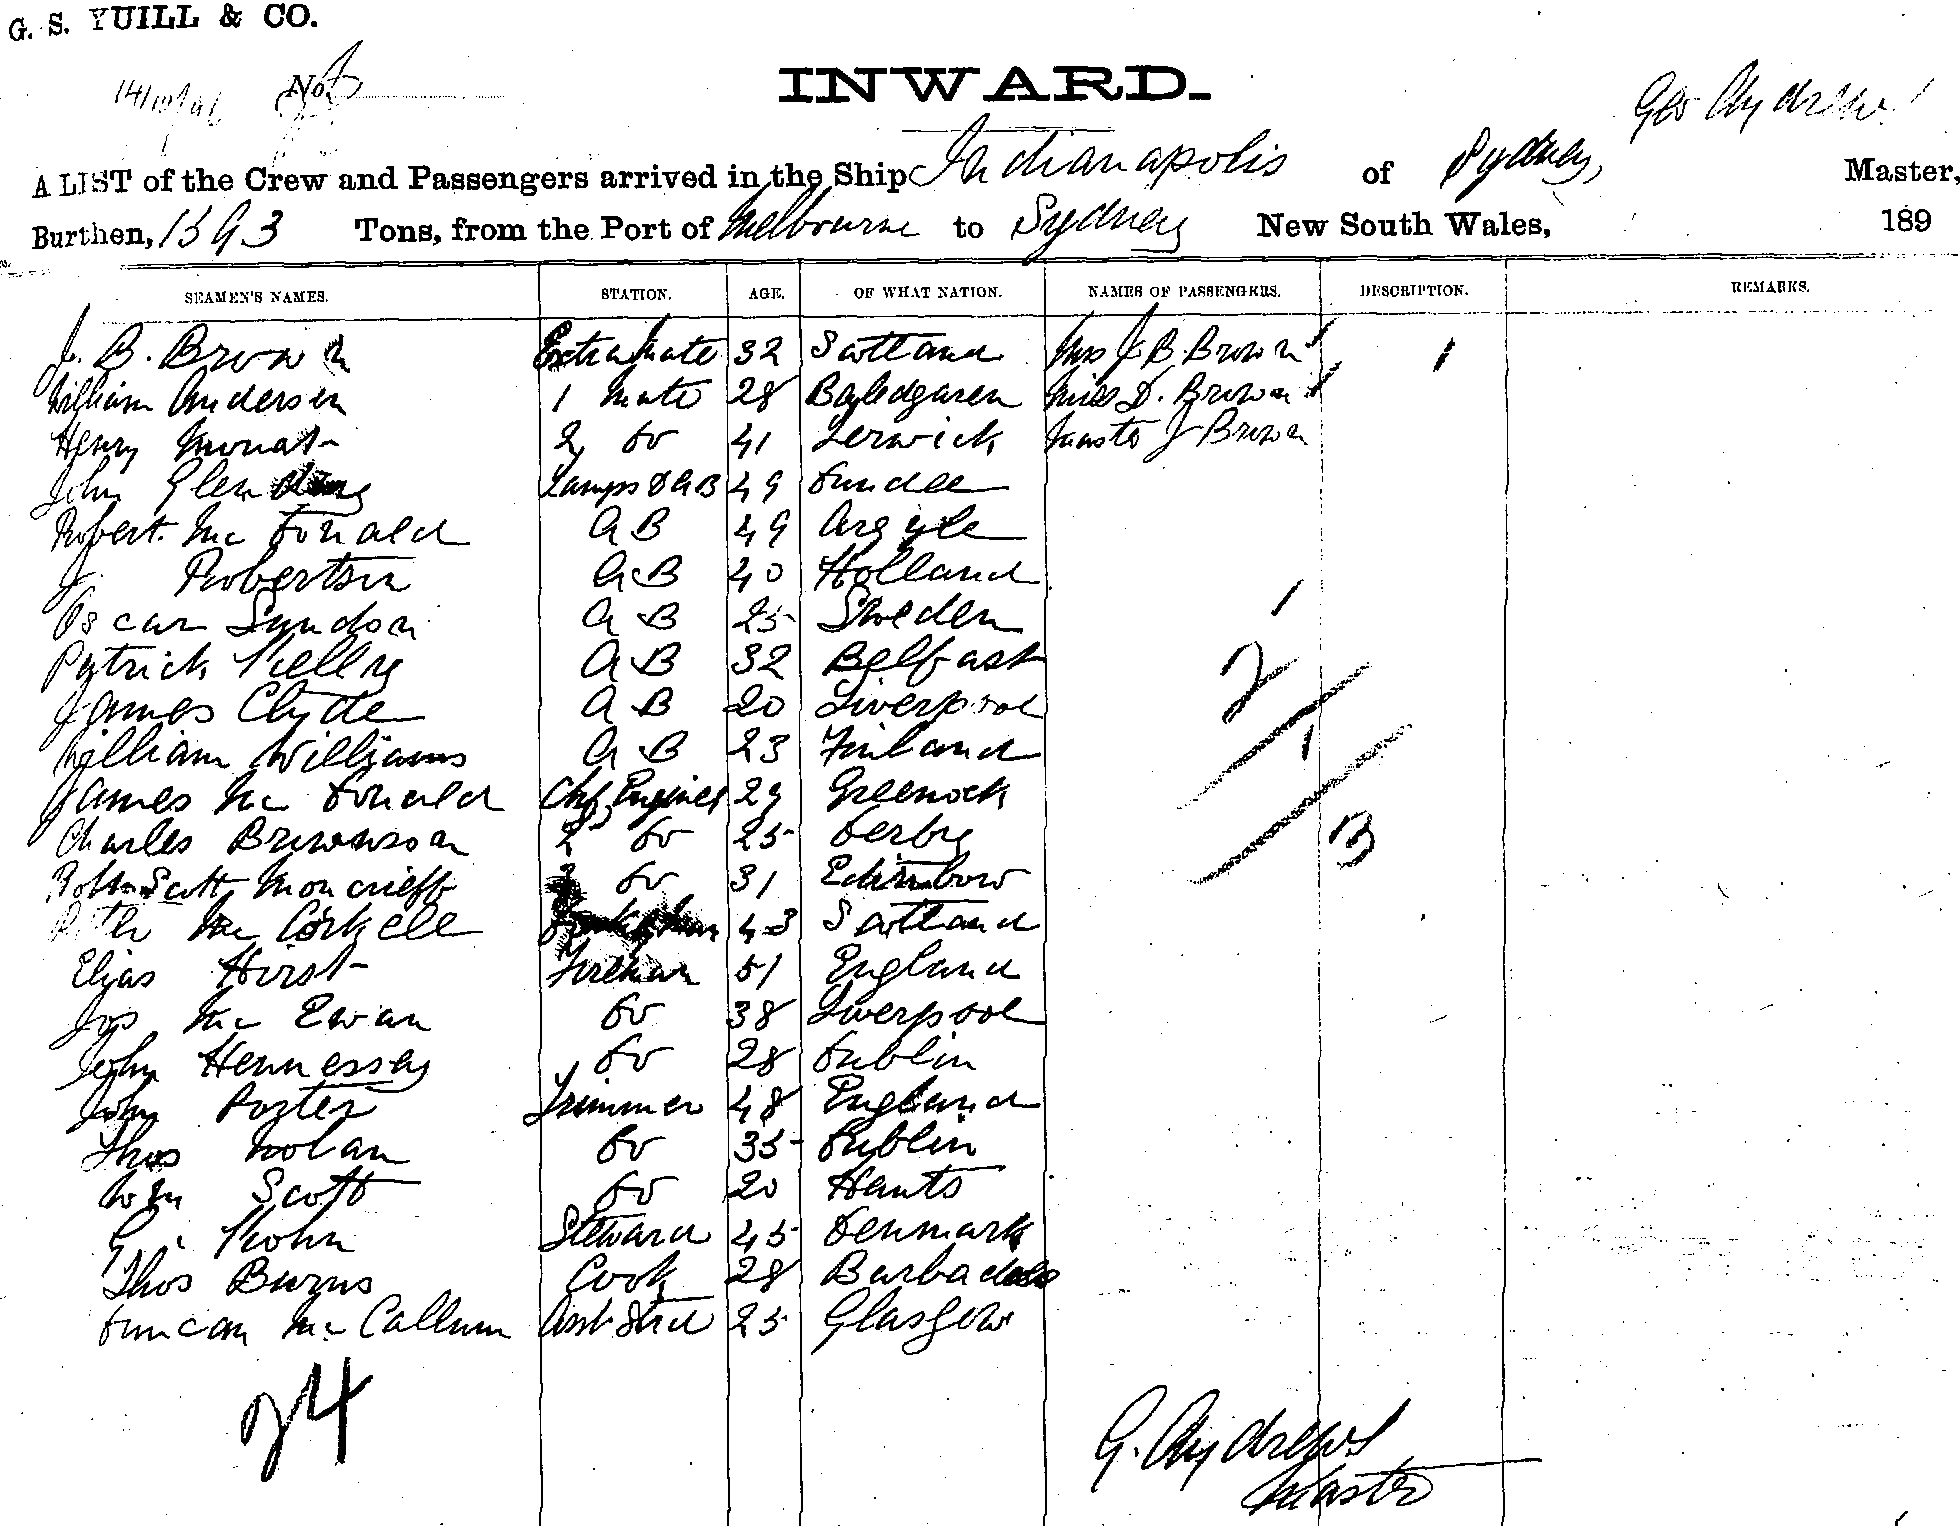 G. S. YUILL & CO.
14/10/91 No.
INWARD.
Geo Andrews
A LIST of the Crew and Passengers arrived in the Ship Indianapolis of Sydney, Master,
Burthen, 1593 Tons, from the Port of Melbourne to Sydney New South Wales, 189
SEAMEN'S NAMES. STATION. AGE. OF WHAT NATION. NAMES OF PASSENGERS. DESCRIPTION. REMARKS.
J. B. Brown Extra Mate 32 Scotland Mrs J B Brown 1 1
William Andersen 1 Mate 28 Miss D. Brown 1
Henry Mouat 2 Do 41 Lerwick Master J Brown
John Lamps & AB 49 Dundee
Robert Mc Donald AB 49 Argyle
J. Robertson AB 40 Holland
Oscar AB 25 Sweden 1
Patrick Kelly AB 32 Belfast 2
James Clyde AB 20 Liverpool
William Williams AB 23 Finland 1
James Mc Donald Chf Engineer 29 Greenock
Charles Brownson 2 Do 25 Derby 3
Robt Scott Moncrieff 3 Do 31 Edinbow
Mc Corkell 43 Scotland
Elias Hirst Fireman 51 England
Jos Mc Ewan Do 38 Liverpool
John Hennessey Do 28 Dublin
John Porter Trimmer 48 England
Thos Nolan Do 35 Dublin
Wm Scott Do 20 Hants
G. Kohn Steward 45 Denmark
Thos Burns Cook 28 Barbadoes
Duncan Mc Callum Asst Strd 25 Glasgow
24
G. Andrews
Master